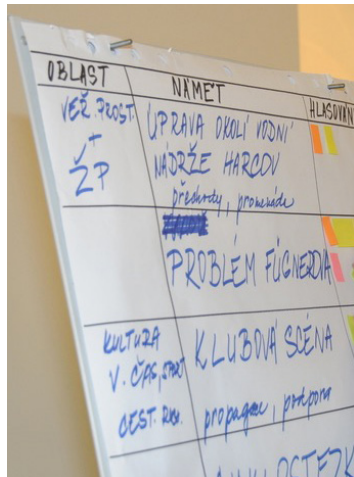 OBLAST NÁMĚT HLASOVÁN
VEŘ. PROST.
+
ŽP
ÚPRAVA OKOLÍ VODNÍ
NÁDRŽE HARCOV
přechody, promenáda
PROBLÉM FÜGNEROVA
KULTURA
V. ČAS, SPORT
CEST. RUCH
KLUBOVÁ SCÉNA
propagace, podpora
CYKLOSTEZK